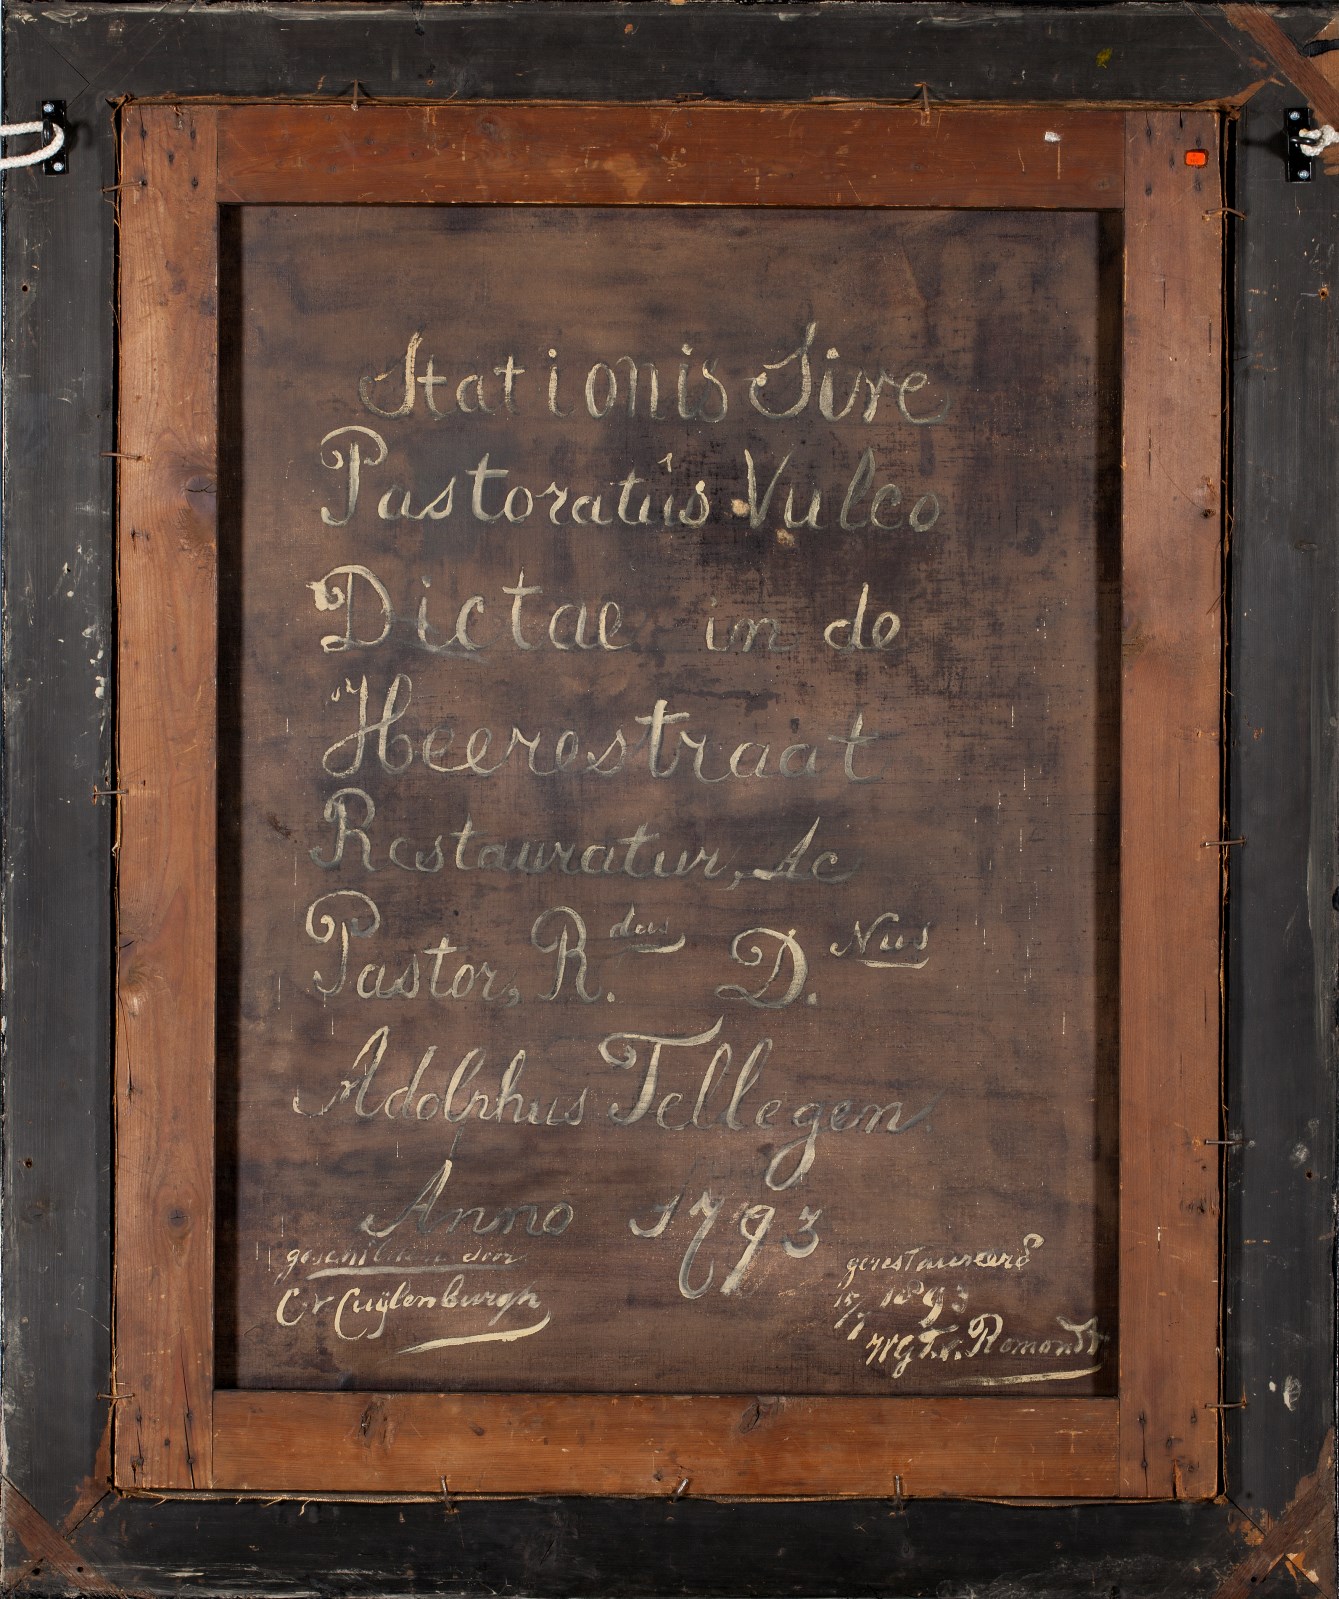 Stationis Sive
Pastoratûs Vulco
Dictae in de
Heerestraat
Restauratur, Ac
Pastor, R.dus D.Nus
Adolphus Tellegen
Anno 1793
geschilderd door
C v Cuÿlenburgh
gerestaureerd
15/7 1893
W G F. v. Romondt